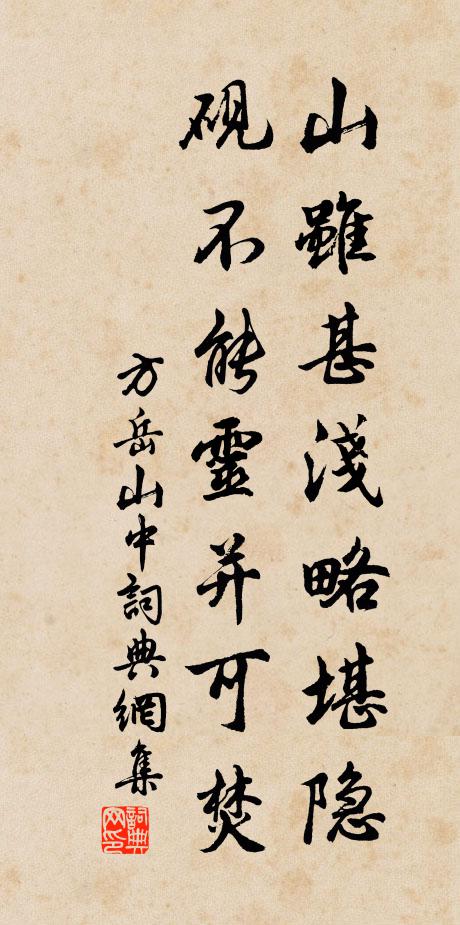 山雖甚淺略堪隐
硯不能靈并可焚
方岳山中詞典網集
詞典网印